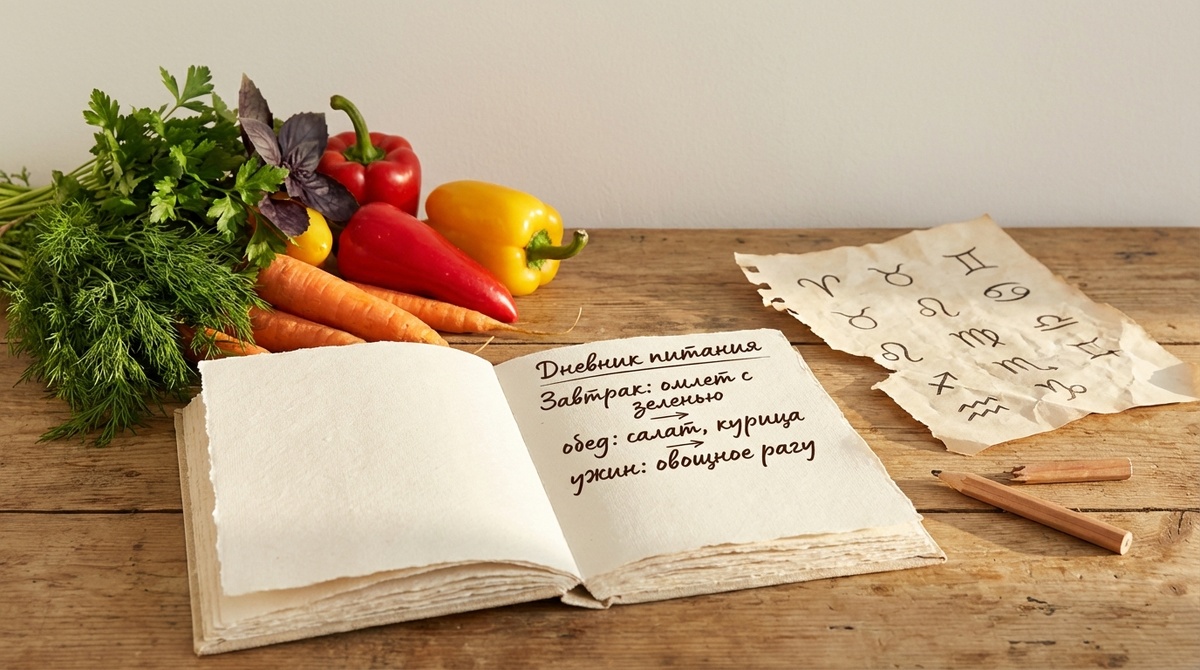 Дневник питания
Завтрак: омлет с
зеленью
→
обед: салат, курица
→
ужин: овощное рагу
♈ ♉ ♊
♉ ♌ ♋
♌ ♍ ♎
♐ ♏ ♓
♒ ♑